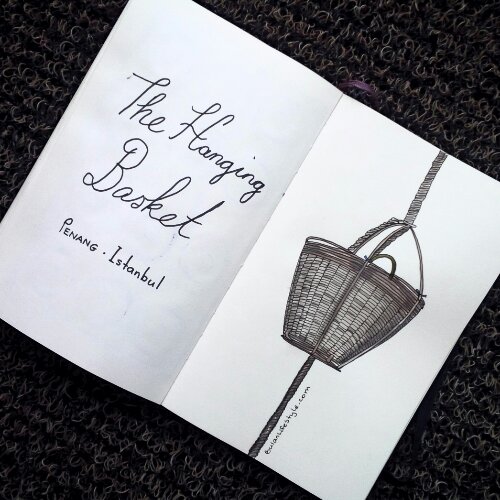 The Hanging
Basket
PENANG . Istanbul
bulanlifestyle.com